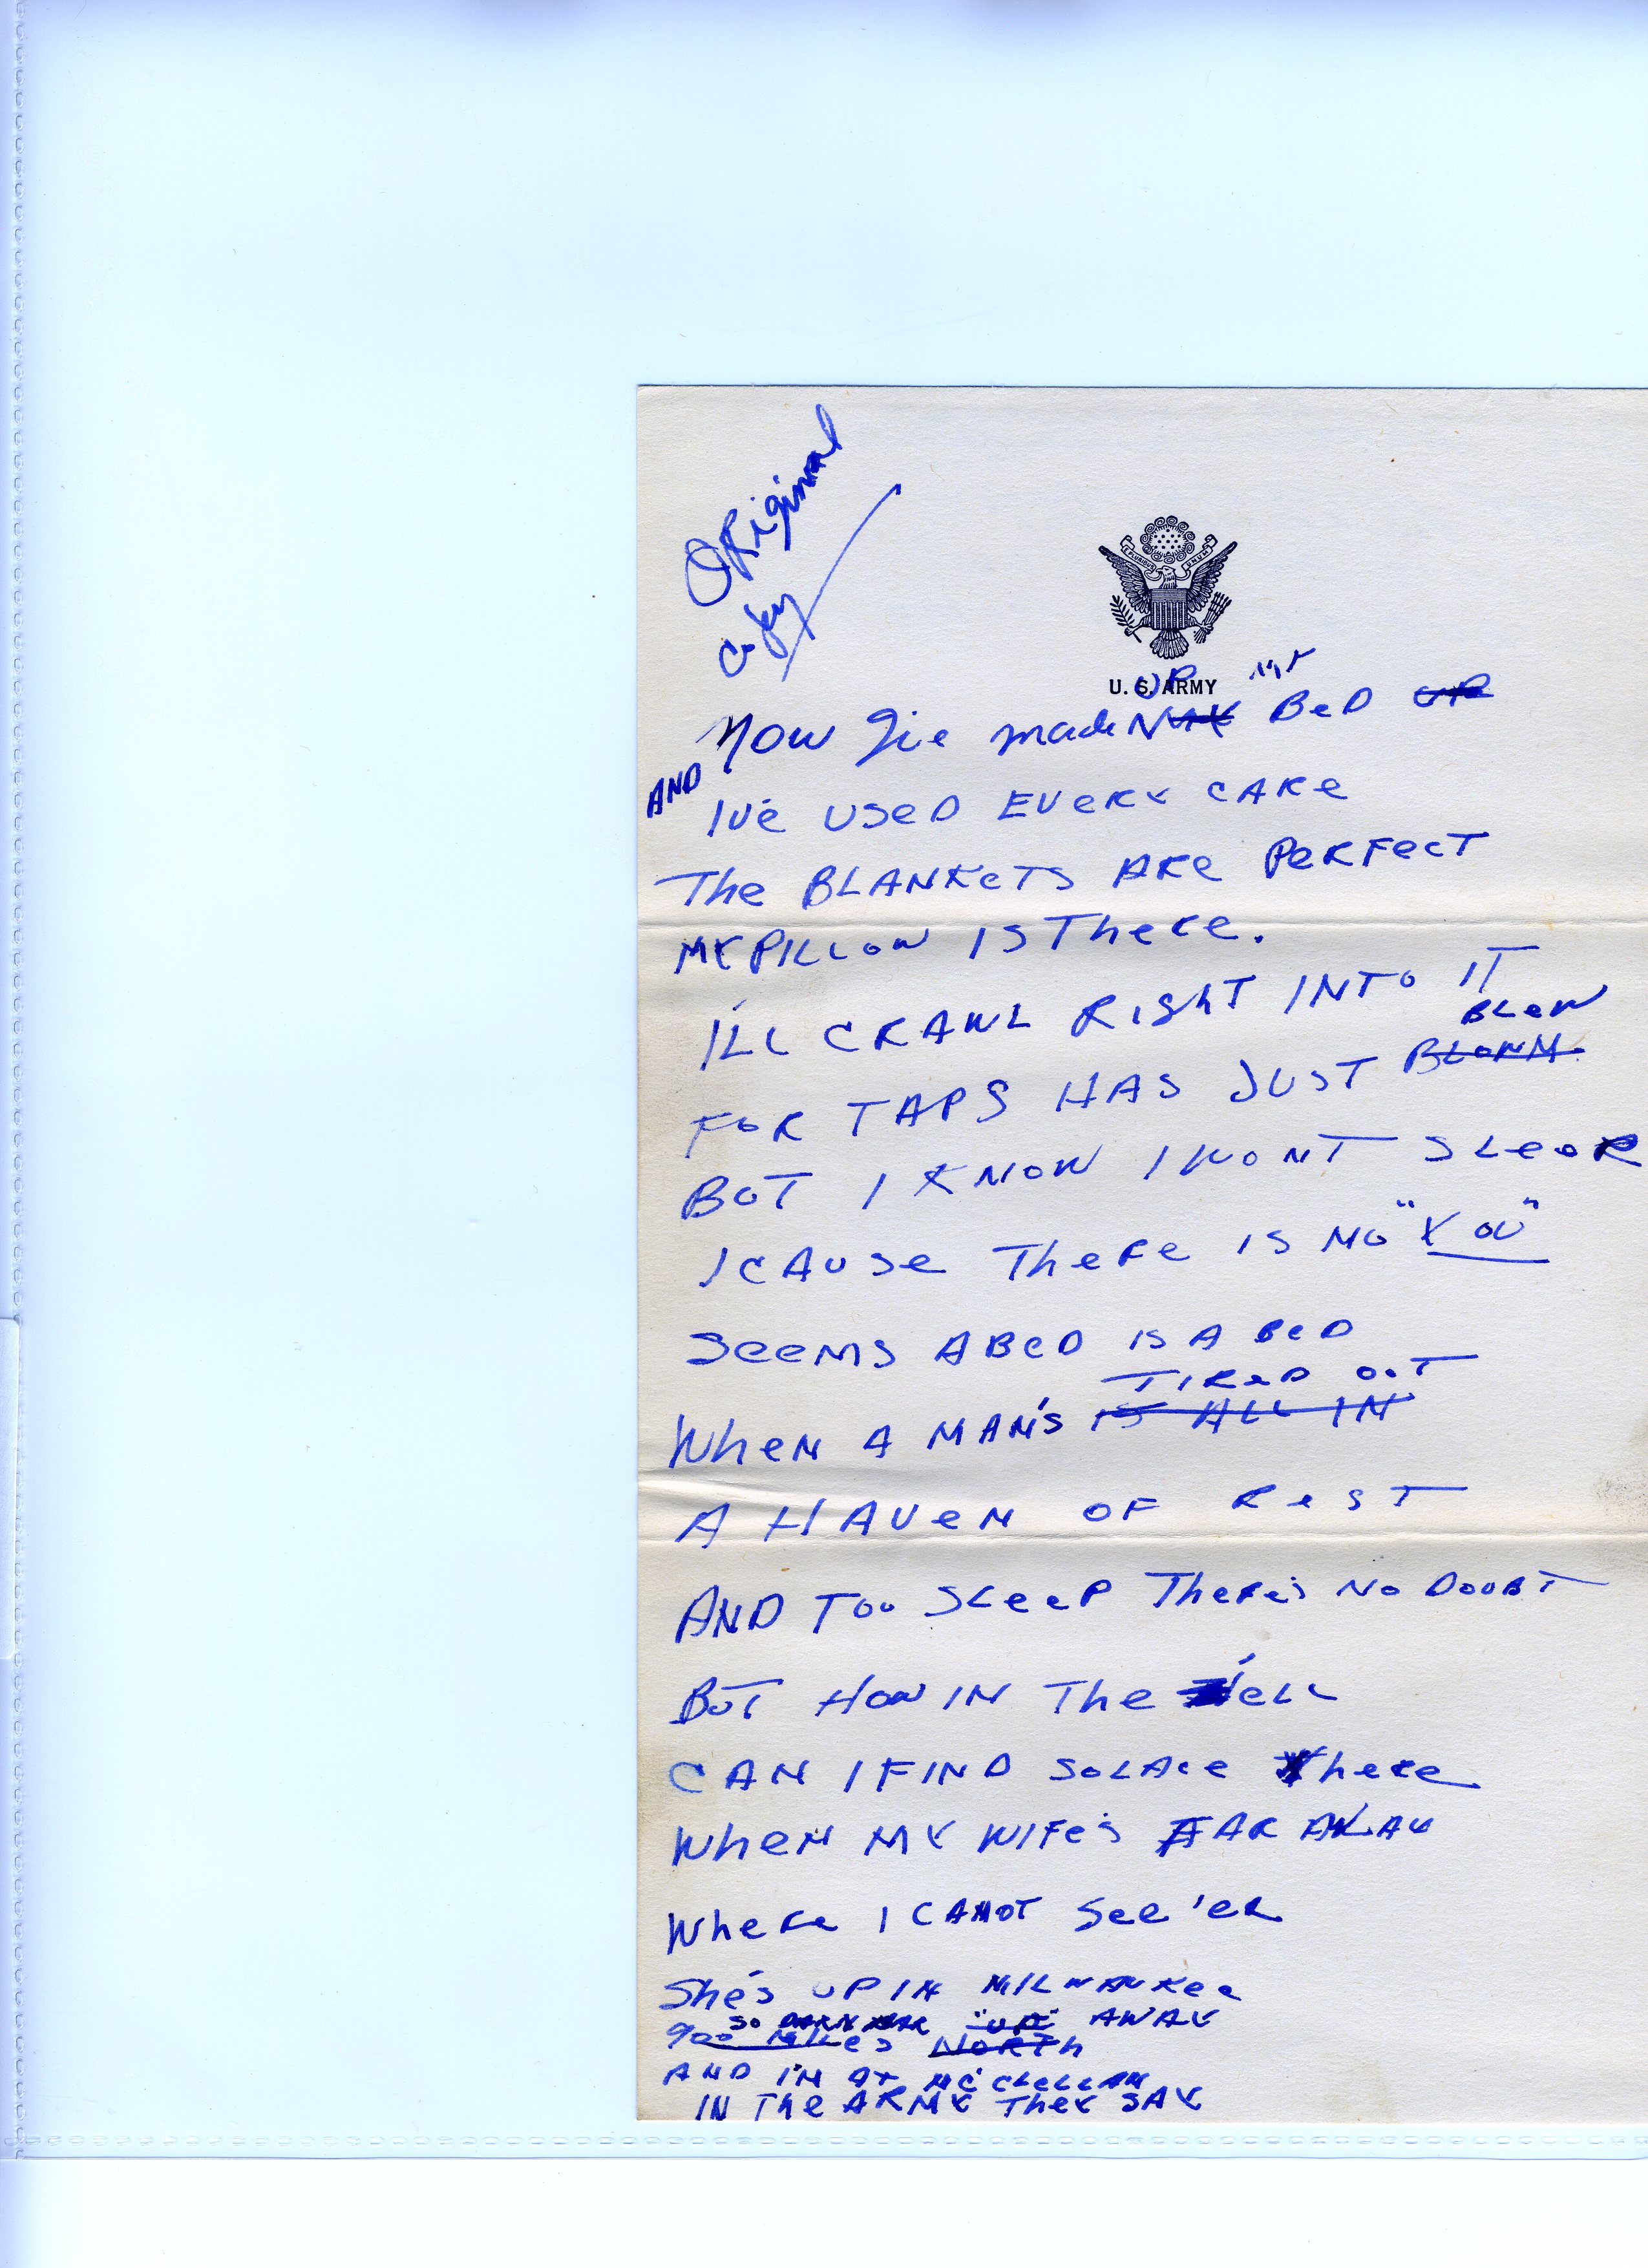 Original
Copy
U. S. ARMY
UP my
Now I've made MY BeD UP
AND
I've USeD EVeRY CARe
The BLANKeTS ARe PeRFecT
MY PILLOW IS TheRe.
I'LL CRAWL RighT INTO IT
BLeW
FOR TAPS HAS JUST BLOWN.
BUT I KNOW I WONT SLeeP
'CAUSe TheRe IS NO "YOU"
SeeMS A BeD IS A BeD
TIReD OUT
WheN A MAN'S IS ALL IN
A HAVeN OF ReST
AND TOO SLeeP TheRe's NO DOUBT
BUT HOW IN The 'eLL
CAN I FIND SOLAce TheRe
WheN MY WIFe's FAR AWAY
WheRe I CANNOT See 'eR
She's UP IN MILWAUKee
SO DARN FAR "UP" AWAY
900 MILes NORTh
AND I'M AT McCLeLLAN
IN The ARMY TheY SAY